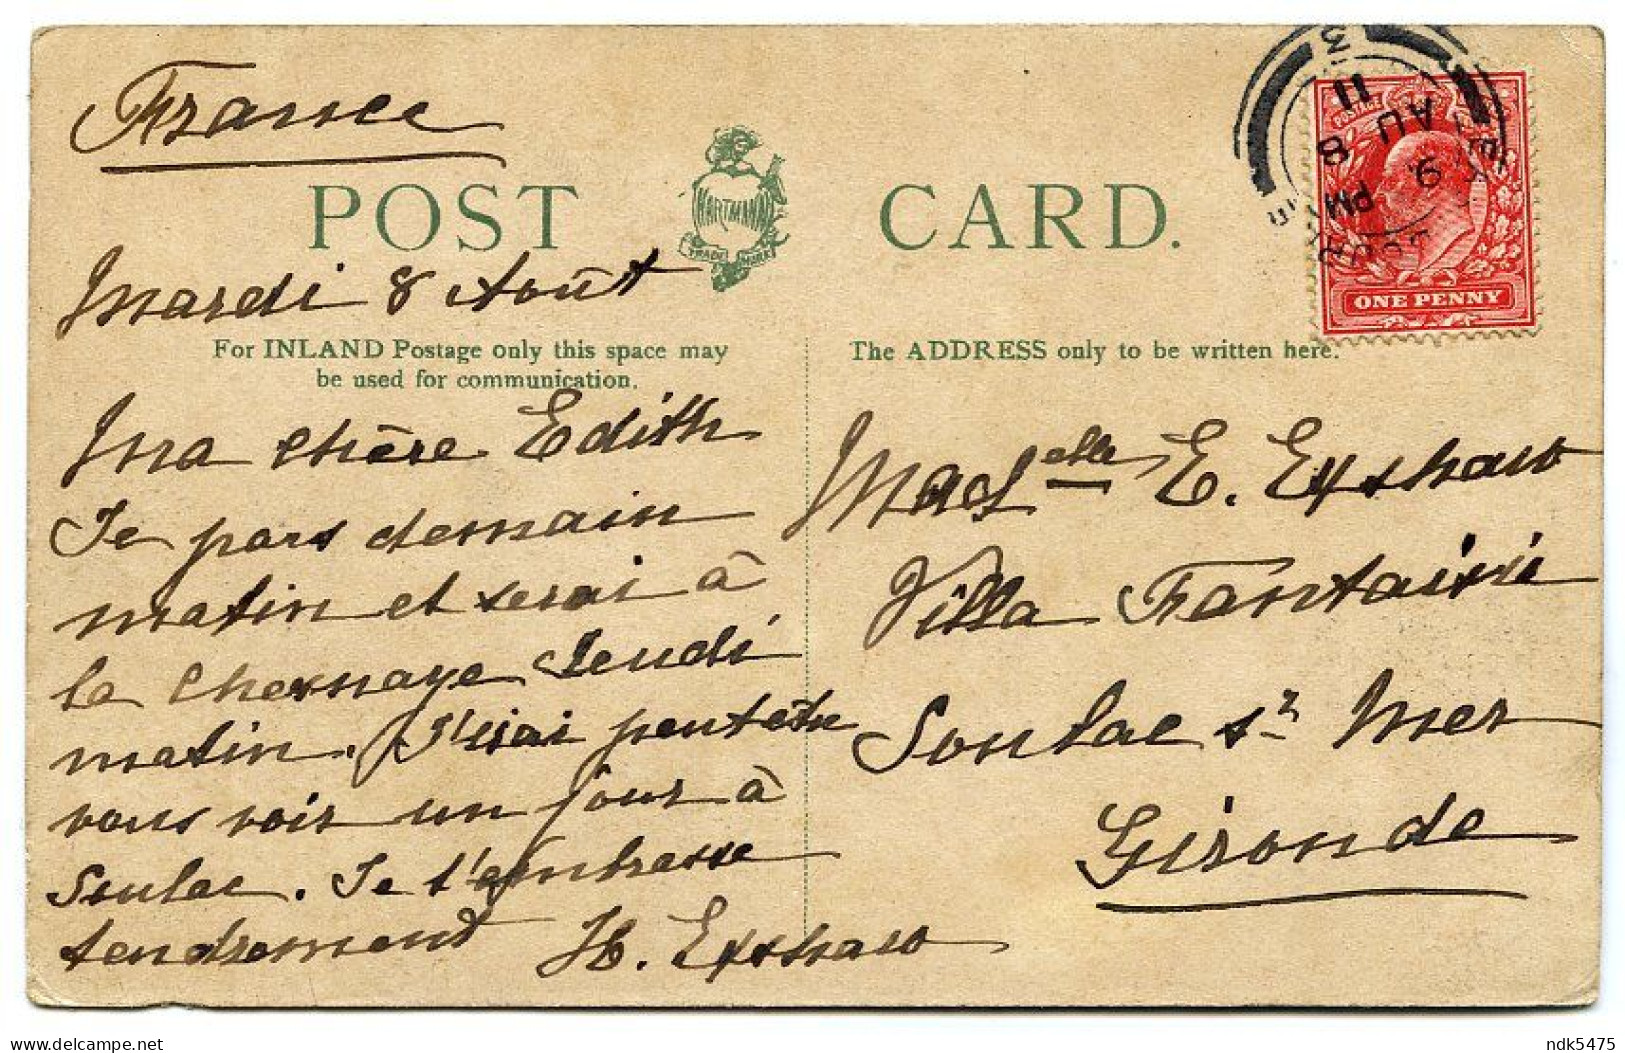 France
POST CARD.
HARTMANN
TRADE MARK
Mardi 8 Août
For INLAND Postage only this space may
be used for communication.
The ADDRESS only to be written here.
Ma chère Edith
Je pars demain
matin et serai à
la Chesnaye Jeudi
matin. J'irai peut être
vous voir un jour à
Soulac. Je t'embrasse
tendrement H. Exshaw
Madelle E. Exshaw
Villa Fantaisie
Soulac sr Mer
Gironde
POSTAGE
ONE PENNY
3
11
AU 8
9. PM
ndk5475